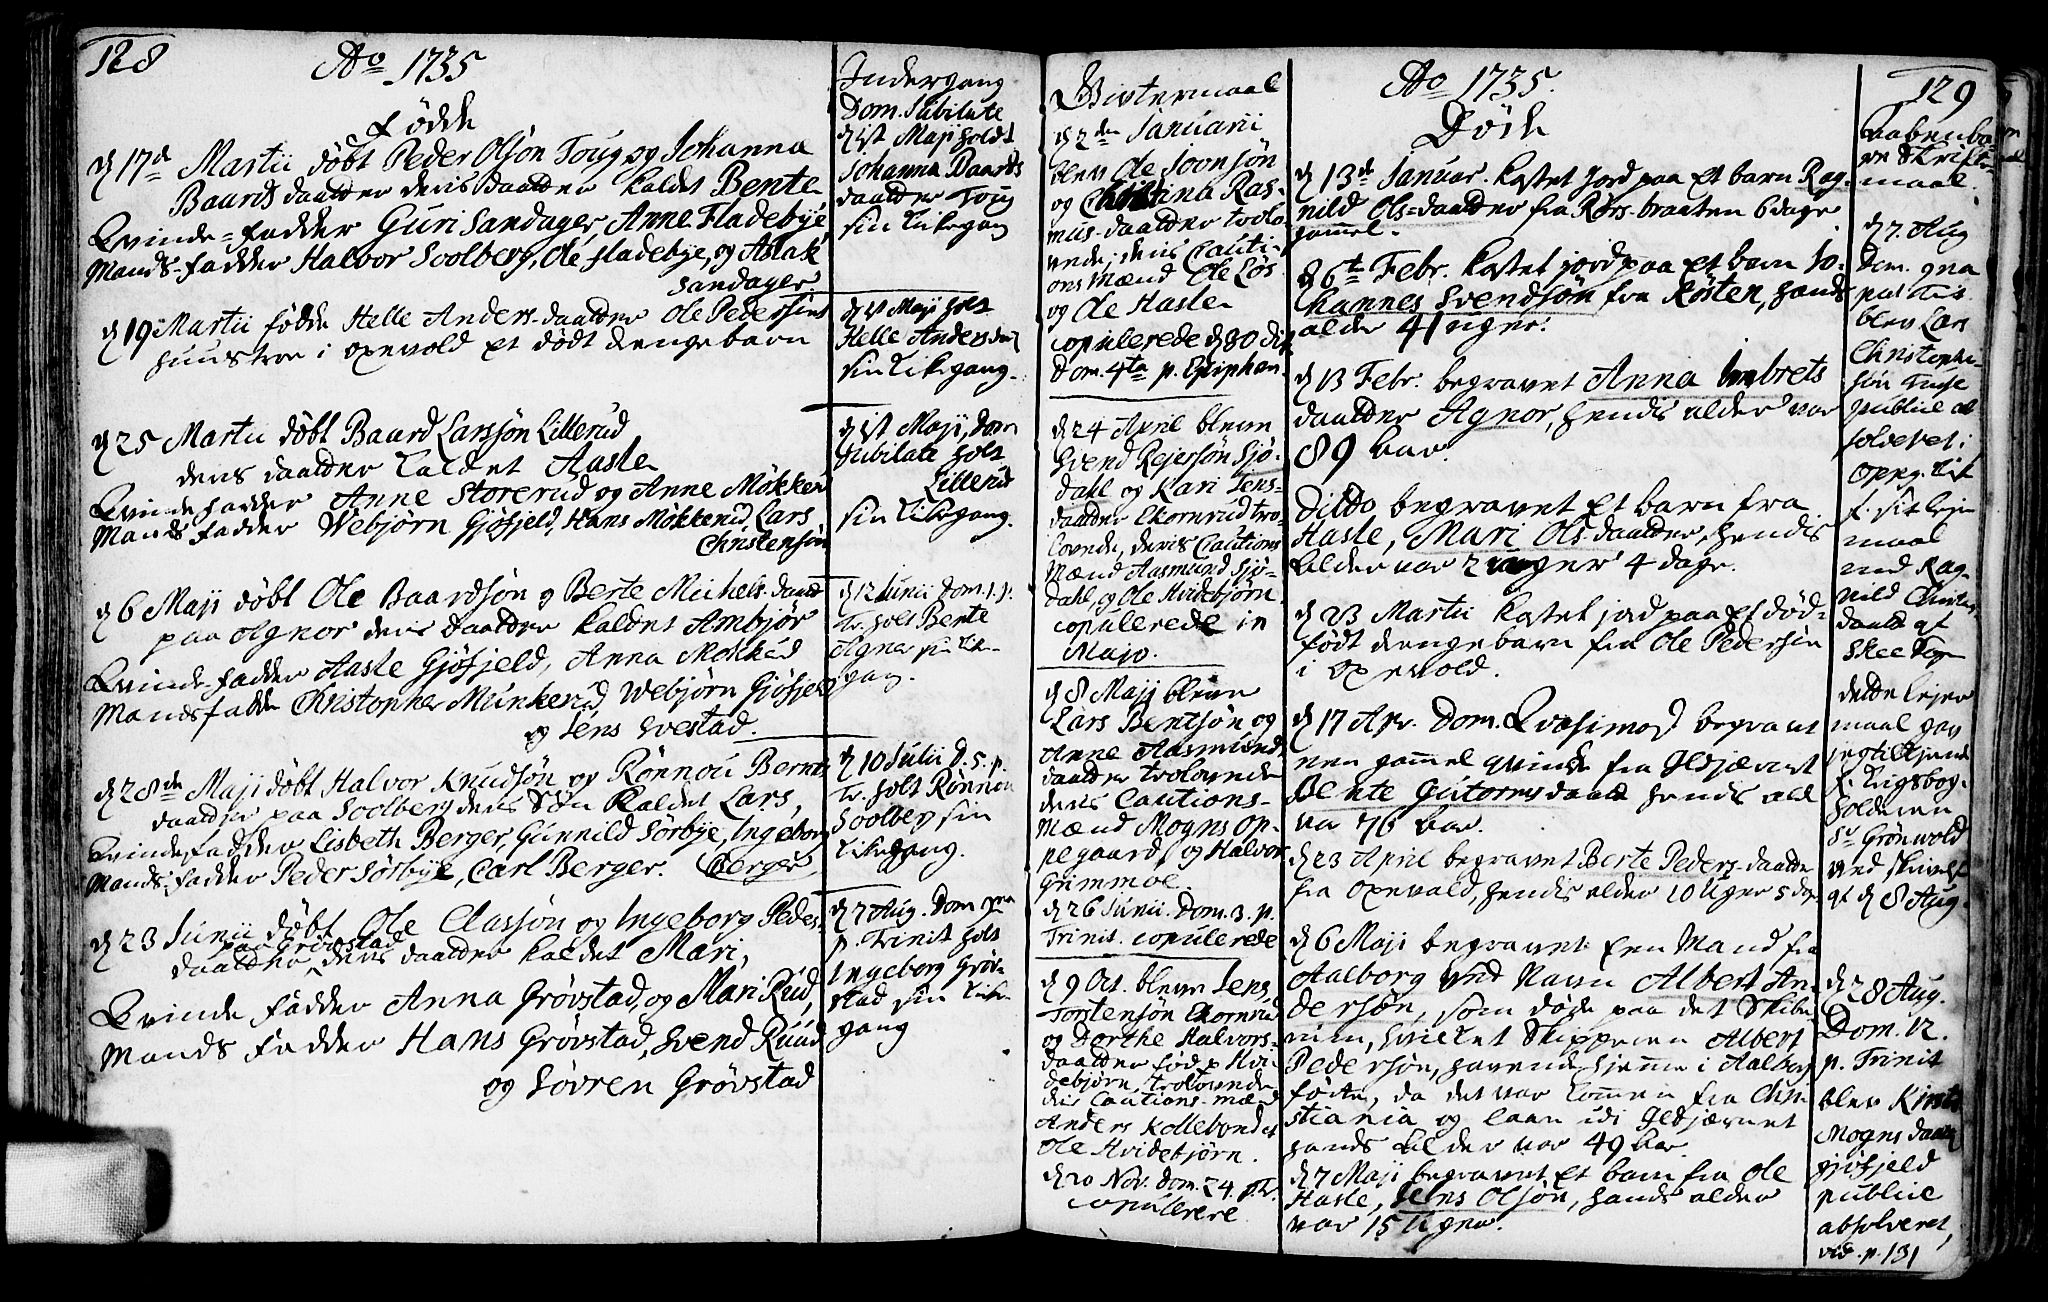 128
Ao 1735
Födde
d 17d Martii döbt Peder Olsön Toug og Johanna
Baards daatter deris daatter kaldet Bente
Qvinde-fadder Guri Sandager, Anne Fladebye,
Mands-fadder Halvor Soolberg, Ole fladebye, og Aslak
Sandager.
d 19 Martii födde Helle Anders-daatter Ole Pedersens
huustroe i oxevold et dödt drengebarn
d 25 Martii döbt Baard Larssön Lillerud
deris daatter kaldet Aasle
Qvinde fadder Anne Storerud og Anne Mökkerud
Mands fadder Webjörn Gjöfjeld, Hans Mökkerud, Lars
Christensön
d 6 Maji döbt Ole Baardsön og Berte Michels-daatt
paa Agnor deris daatter kaldet Ambjör
Qvinde fadder Aasle Gjöfjeld, Anna Mökkerud
Mandsfadder Christopher Munkerud Webjörn Gjöfjeld
og Jens Svestad.
d 28de Maji döbt Halvor Knudsön og Rönnou Bernts
daatter paa Soolberg deris Sön kaldet Lars,
Qvindefadder Lisbeth Berger, Gunnild Sörbye, Ingeborg
Mands-fadder Peder Sörbye, Carl Berger. Berger
d 23 Junii döbt Ole Classön og Ingeborg Peders
paa Grövstad
daatter, deris daatter kaldet Mari,
Qvinde fadder Anna Grövstad, og Mari Rud,
Mands fadder Hans Grövstad, Svend Ruud
og Sövren Grövstad
Indergang
Dom. Jubilate
d 1st Maji holdt
Johanna Baards
daatter Toug
sin kirkegang
d 1st Maji holt
Helle Andersdat
sin kirkegang.
d 1st Maji, Dom
Jubilate holt
Lillerud
sin kirkegang.
d 12 Junii Dom. 1. p.
Tr. holt Bente
Agnor sin kirke
gang.
d 10 Julii D. 5. p.
Tr. holt Rönnou
Soolberg sin
kirkegang.
d 7 Aug. Dom 9na
p. Trinit holt
Ingeborg Gröv-
stad sin kirke
gang
Givtermaal
d 2den Januarii
blev Ole Joonsön
og Christina Ras-
mus-daatter trolo-
vede, deris Cauti-
ons Mænd Ole Lös
og Ole Hasle
copulerede d 30 dito
Dom. 4ta p. Epiphan.
d 24 April bleve
Svend Rejersön Sjö-
dahl og Kari Jens-
daatter Ekornrud tro-
lovede, deris Cautions
Mænd Aasmund Sjö-
dahl, og Ole Hvidebjörn.
copulerede in
Majo.
d 8 Maji bleve
Lars Bentsön og
Anne Aasmunds
daatter trolovede
deris Cautions-
Mænd Mogns Op-
pegaard, og Halvor
Grimmoe.
d 26 Junii. Dom. 3. p.
Trinit. copulerede
d 9 Oct. bleve Jens
Torstensön Ekornrud
og Dorthe Halvors-
daatter föd p Hvi-
debjörn trolovede
deris Cautions-mænd
Anders Kollebond et
Ole Hvidebjörn.
d 20 Nov. Dom. 24. p. Tr.
copulerere
Ao 1735.
Döde
d 13de Januar. kastet jord paa et barn Rag-
nild Ols=daatter fra Rörs-braaten 6 dage
gammel.
d 6te Febr. kastet jord paa et barn Jo-
hannes Svendsön fra Kösten, hands
alder 41 uger.
d 13 Febr. begravet Anna Imbrets
daatter Agnor, hendes alder var
89 aar.
Ditto begravet et barn fra
Hasle, Mari Ols-daatter, hendis
alder var 2 uger 4 dage.
d 23 Martii kastet jord paa et död-
födt drengebarn fra Ole Pedersön
i oxevold.
d 17 Apr. Dom. Qvasimod begravet
een gammel qvinde fra Gledjærnet
Bente Gutorms daatt hendes ald
var 76 aar.
d 23 April begravet Berte Peders-daatter
fra oxevold, hendis alder 10 uger 5 dag.
d 6 Maji begravet een Mand fra
Aalborg ved Navn Albert An-
dersön, som döde paa det Skib
hvilket Skipperen Albert
Pedersön, havende hjemme i Aalborg
förte, da det var kommen fra Chri-
stiania og laae udi Gledjærnet
hands alder var 49 aar.
d 7 Maji begravet et barn fra Ole
Hasle, Jens Olsön, hands alder
var 15 uger.
129
Aabenba-
re Skrifte-
maal.
d 7. Aug
Dom. 9na
post Tris
blev Lars
Christophe-
sön
publice ab
solveret,
Oppeg. kirk
f. sit leje
maal
med Rag-
nild Christens
daatt af
Skee Dog
dette lejer
maal gav
jeg tilkjende
f. krigsbog-
holderen
Sr Grönwold
ved skrivelse
af d 8 Aug.
d 28 Aug.
Dom. 12.
p. Trinit
blev Kirsti
Mogns daatt
gjöfjeld
publice
absolveret,
vid. p. 131